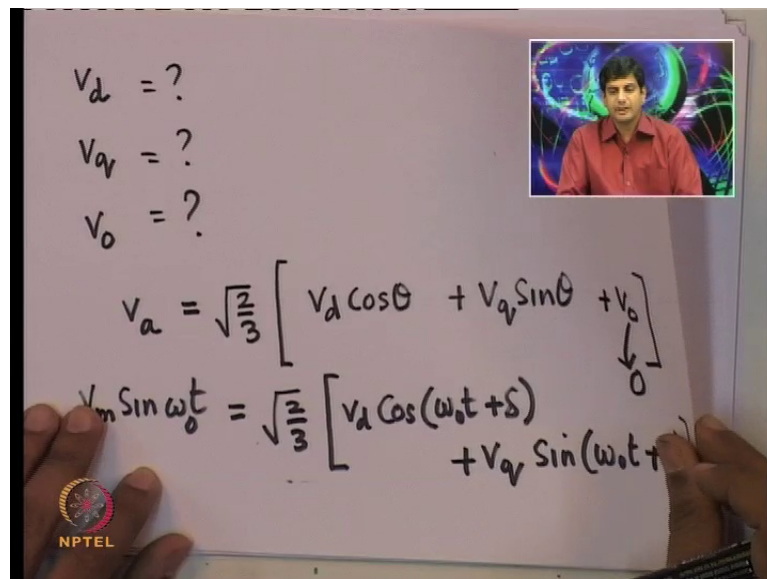 V_d = ?
V_q = ?
V_o = ?
V_a = √(2/3) [ V_d Cosθ + V_q Sinθ + V_o ]
↓
0
V_m Sin ω_0 t = √(2/3) [ V_d Cos(ω_0 t + δ)
+ V_q Sin(ω_0 t +
NPTEL